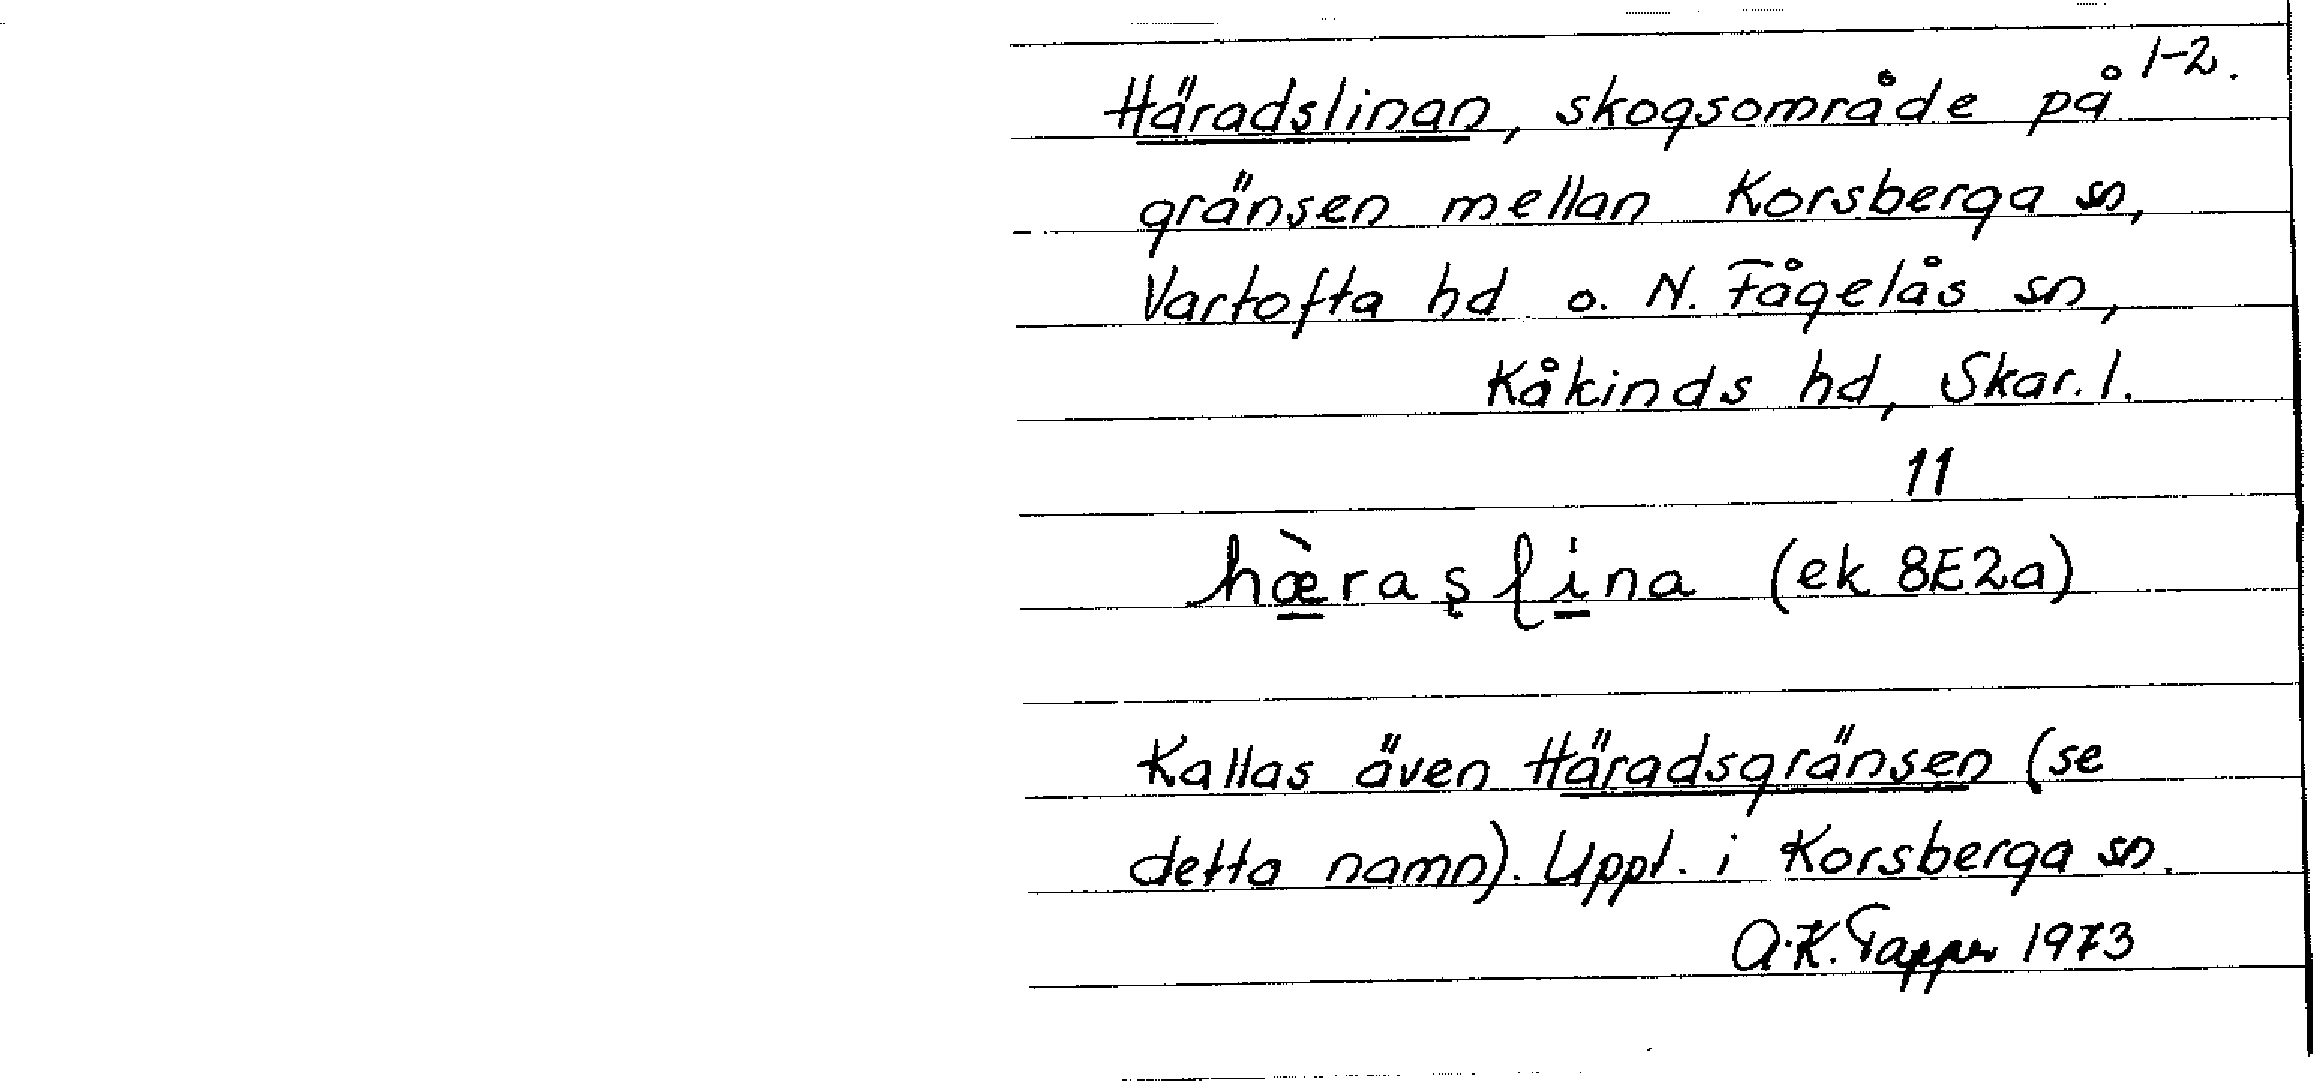 1-2.
Häradslinan, skogsområde på
gränsen mellan Korsberga sn,
Vartofta hd o. N. Fågelås sn,
Kåkinds hd, Skar. l.
11
hæ̀raşlina (ek 8E2a)
Kallas även Häradsgränsen (se
detta namn). Uppt. i Korsberga sn.
A-K. Tapper 1973